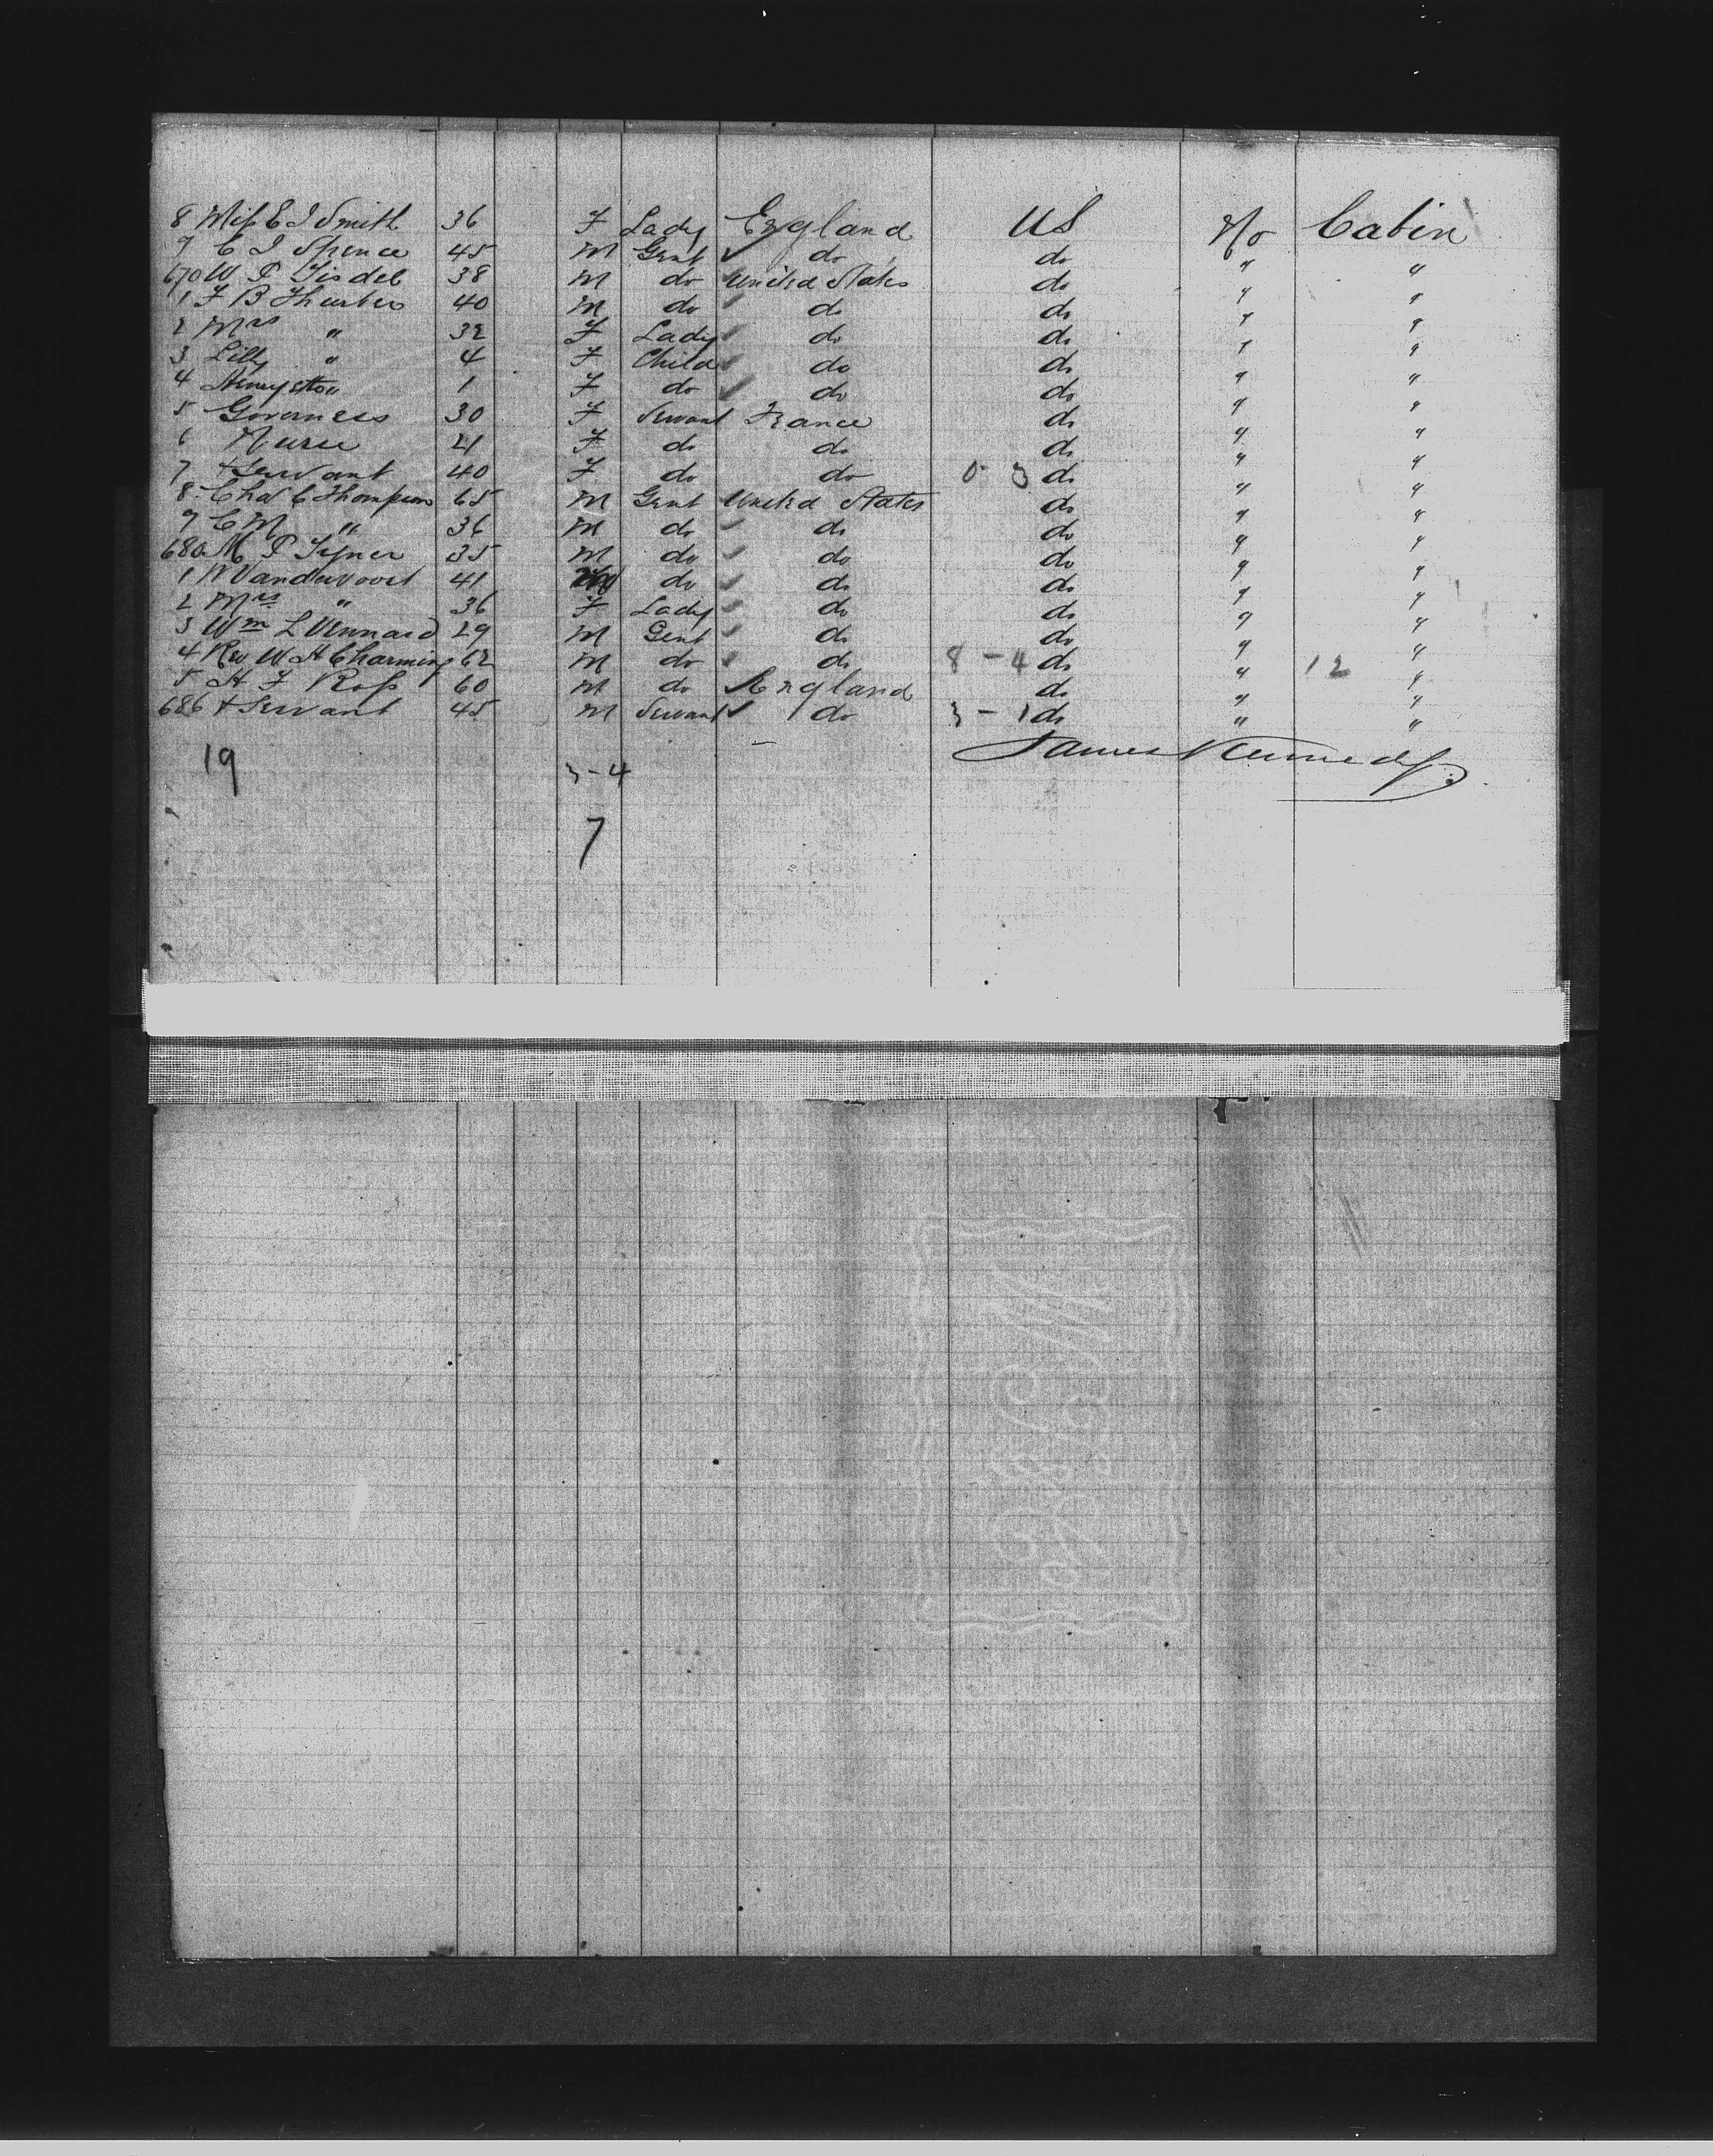 8 Miss E J Smith 36 F Lady England US No Cabin
9 C J Spence 45 M Gent ✓ do do " "
670 W P Tisdel 38 M do United States do " "
1 F B Thurber 40 M do do do " "
2 Mrs " 32 F Lady do do " "
3 Lilly " 4 F Child do do " "
4 " 1 F do do do " "
5 Governess 30 F Servant France do " "
6 Nurse 21 F do do do " "
7 + Servant 40 F do do 0 3 do " "
8 Chas C Thompson 65 M Gent United States do " "
9 C M " 36 M do do do " "
680 M P Tyner 35 M do do do " "
1 W Vandervoort 41 M do do do " "
2 Mrs " 36 F Lady do do " "
3 Wm L Vennard 29 M Gent do do " "
4 Rev W H Channing 62 M do do 8 - 4 do " 12 "
5 H F Ross 60 M do ✓ England do " "
686 + Servant 45 M Servant ✓ do 3 - 1 do " "
James Kennedy
19 3-4
7